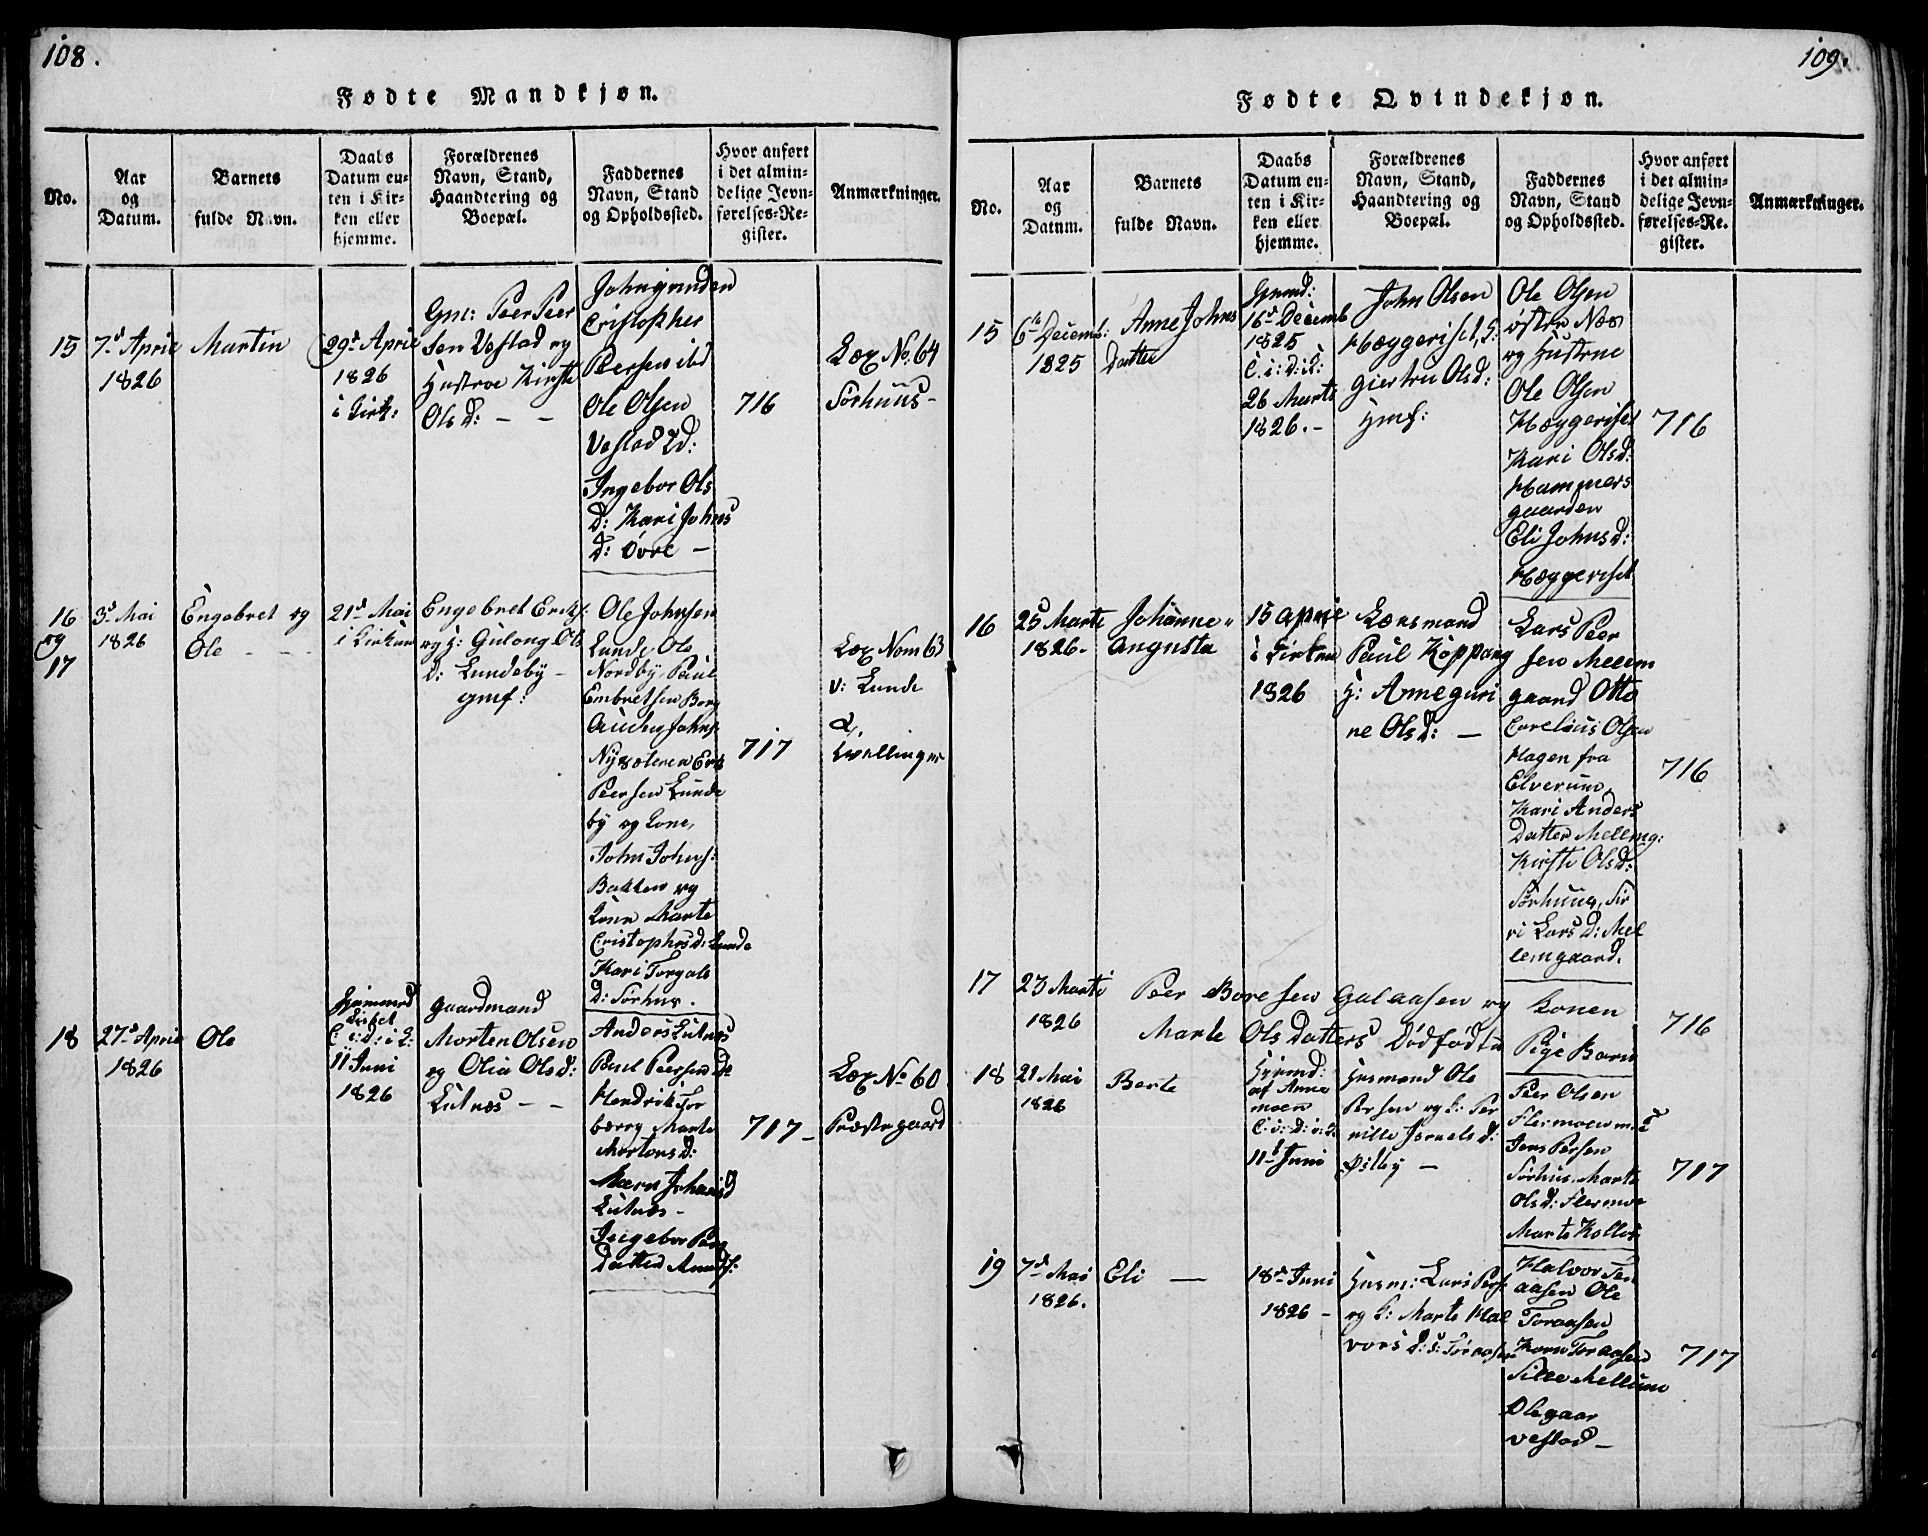 108.
Fødte Mandkjøn.
No.
Aar
og
Datum.
Barnets
fulde Navn.
Daabs
Datum en-
ten i Kir-
ken eller
hjemme.
Forældrenes
Navn, Stand,
Haandtering og
Boepæl.
Faddernes
Navn, Stand
og Opholdssted.
Hvor anført
i det almin-
delige Jevn-
førelses-Re-
gister.
Anmærkninger.
15
7d April
1826
Martin
29d April
1826
i Kirk:
Gm: Peer Peer
sen Vestad og
Hustroe Kirsti
Olsd: - -
Cristopher
Persen ibd
Ole Olsen
Vestad
Ingebor Ols
D: Kari Johns
D: Øvre -
716
Lœg No. 64
Sørhuus-
16
og
17
3d Mai
1826
Engebret og
Ole - - -
21d Mai
i Kirken
Engebret Ericks:
og H: Gulong Ols
D: Lundeby -
gmf:
Ole Johnsen
Lunde, Ole
Nordby, Paul
Embretsen Berg
Johns:
Nysæteren Erik
Peersen Lunde
by og Kone,
John Johns:
Bakken og
Kone Marte
Cristophersd: Lunde
Kari Torgals
D: Sørhus.
717
Læg Nom 63
v: Lunde
&
Qvellinger
18
27d April
1826
Ole
Hjemmed
C: i: D: i K:
11 Juni
1826
gaardmand
Morten Olsen
og Olia Olsd:
Lutnæs - -
Anders Lutnæs
Paul Peersen
Hendrik Tor
berg Marte
Mortensd:
Maren Johansd
Lutnæs -
Ingebor Peers
Datter
717-
Læg No 60
Præstegaard
109.
Fødte Qvindekjøn.
No.
Aar
og
Datum.
Barnets
fulde Navn.
Daabs
Datum en-
ten i Kir-
ken eller
hjemme.
Forældrenes
Navn, Stand,
Haandtering og
Boepæl.
Faddernes
Navn, Stand
og Opholdssted.
Hvor anført
i det almin-
delige Jevn-
førelses-Re-
gister.
Anmærkninger.
15
6te Decemb:
1825
Anne Johns
Datter
Hjemd:
16d Decemb
1825
C: i: D: i K:
26 Marti
1826.-
John Olsen
Hæggeriset, H:
Giertru Olsd:
Hmf:
Ole Olsen
østre Næs
og Hustrue
Ole Olsen
Hæggeriset
Kari Olsd:
Hammers
gaarden
Eli Johnsd:
Hæggeriset
716
16
25 Marti
1826-
Johanne
Augusta
15 april
i Kirken
1826
Lænsmand
Paul Koppang
H: Anneguri
ne Olsd: -
Lars Peer
sen Mellem
gaard Otto
Cornelius Olsen
Hagen fra
Elverum,
Kari Anders
Datter Mellemg:
Kirsti Olsd:
Sørhuus, Sir
ri Larsd: Mel
lemgaard.
716
17
23 Marti
1826
Peer Boresen Galaasen og Konen
Marte Olsdatters Dødfødte Pige Barn
716
18
21 Mai
1826
Berte
Hjemd:
af Anne
moen
C: i: D: i K:
11d Juni
Husmand Ole
Persen og K: Per
nille Israelsd:
Østby -
Peer Olsen
Jens Persen
Sørhus. Marte
Olsd: Flermoe
Marte Kolles
717
19
7d Mai
1826.
Eli -
18d Juni
1826 -
Husm: Lars Pers:
og K: Marte Hal
vorsd: S: Toraasen
Halvor Tor
aasen Ole
Toraasen
Karen Toraasen
Sille Mellum
Olegaar
Vestad -
717